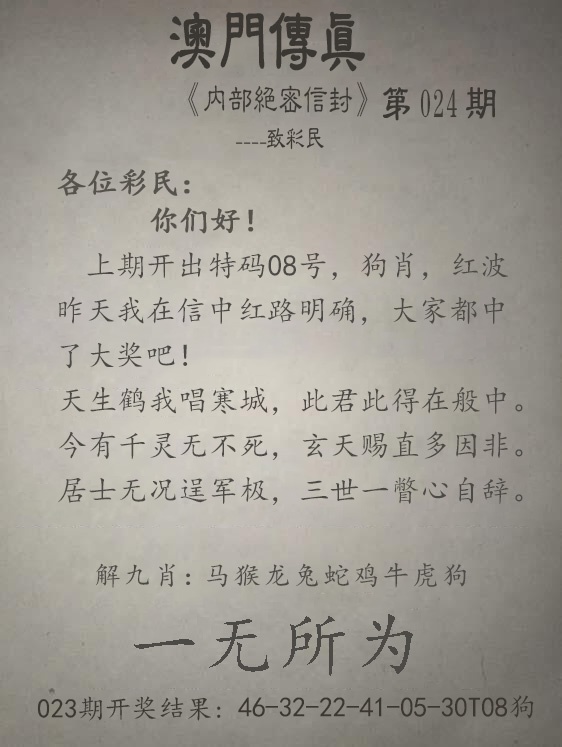 澳門傳眞
《内部絕密信封》第024期
----致彩民
各位彩民：
你们好！
上期开出特码08号，狗肖，红波
昨天我在信中红路明确，大家都中
了大奖吧！
天生鹤我唱寒城，此君此得在般中。
今有千灵无不死，玄天赐直多因非。
居士无况逞军极，三世一瞥心自辞。
解九肖：马猴龙兔蛇鸡牛虎狗
一无所为
023期开奖结果：46-32-22-41-05-30T08狗